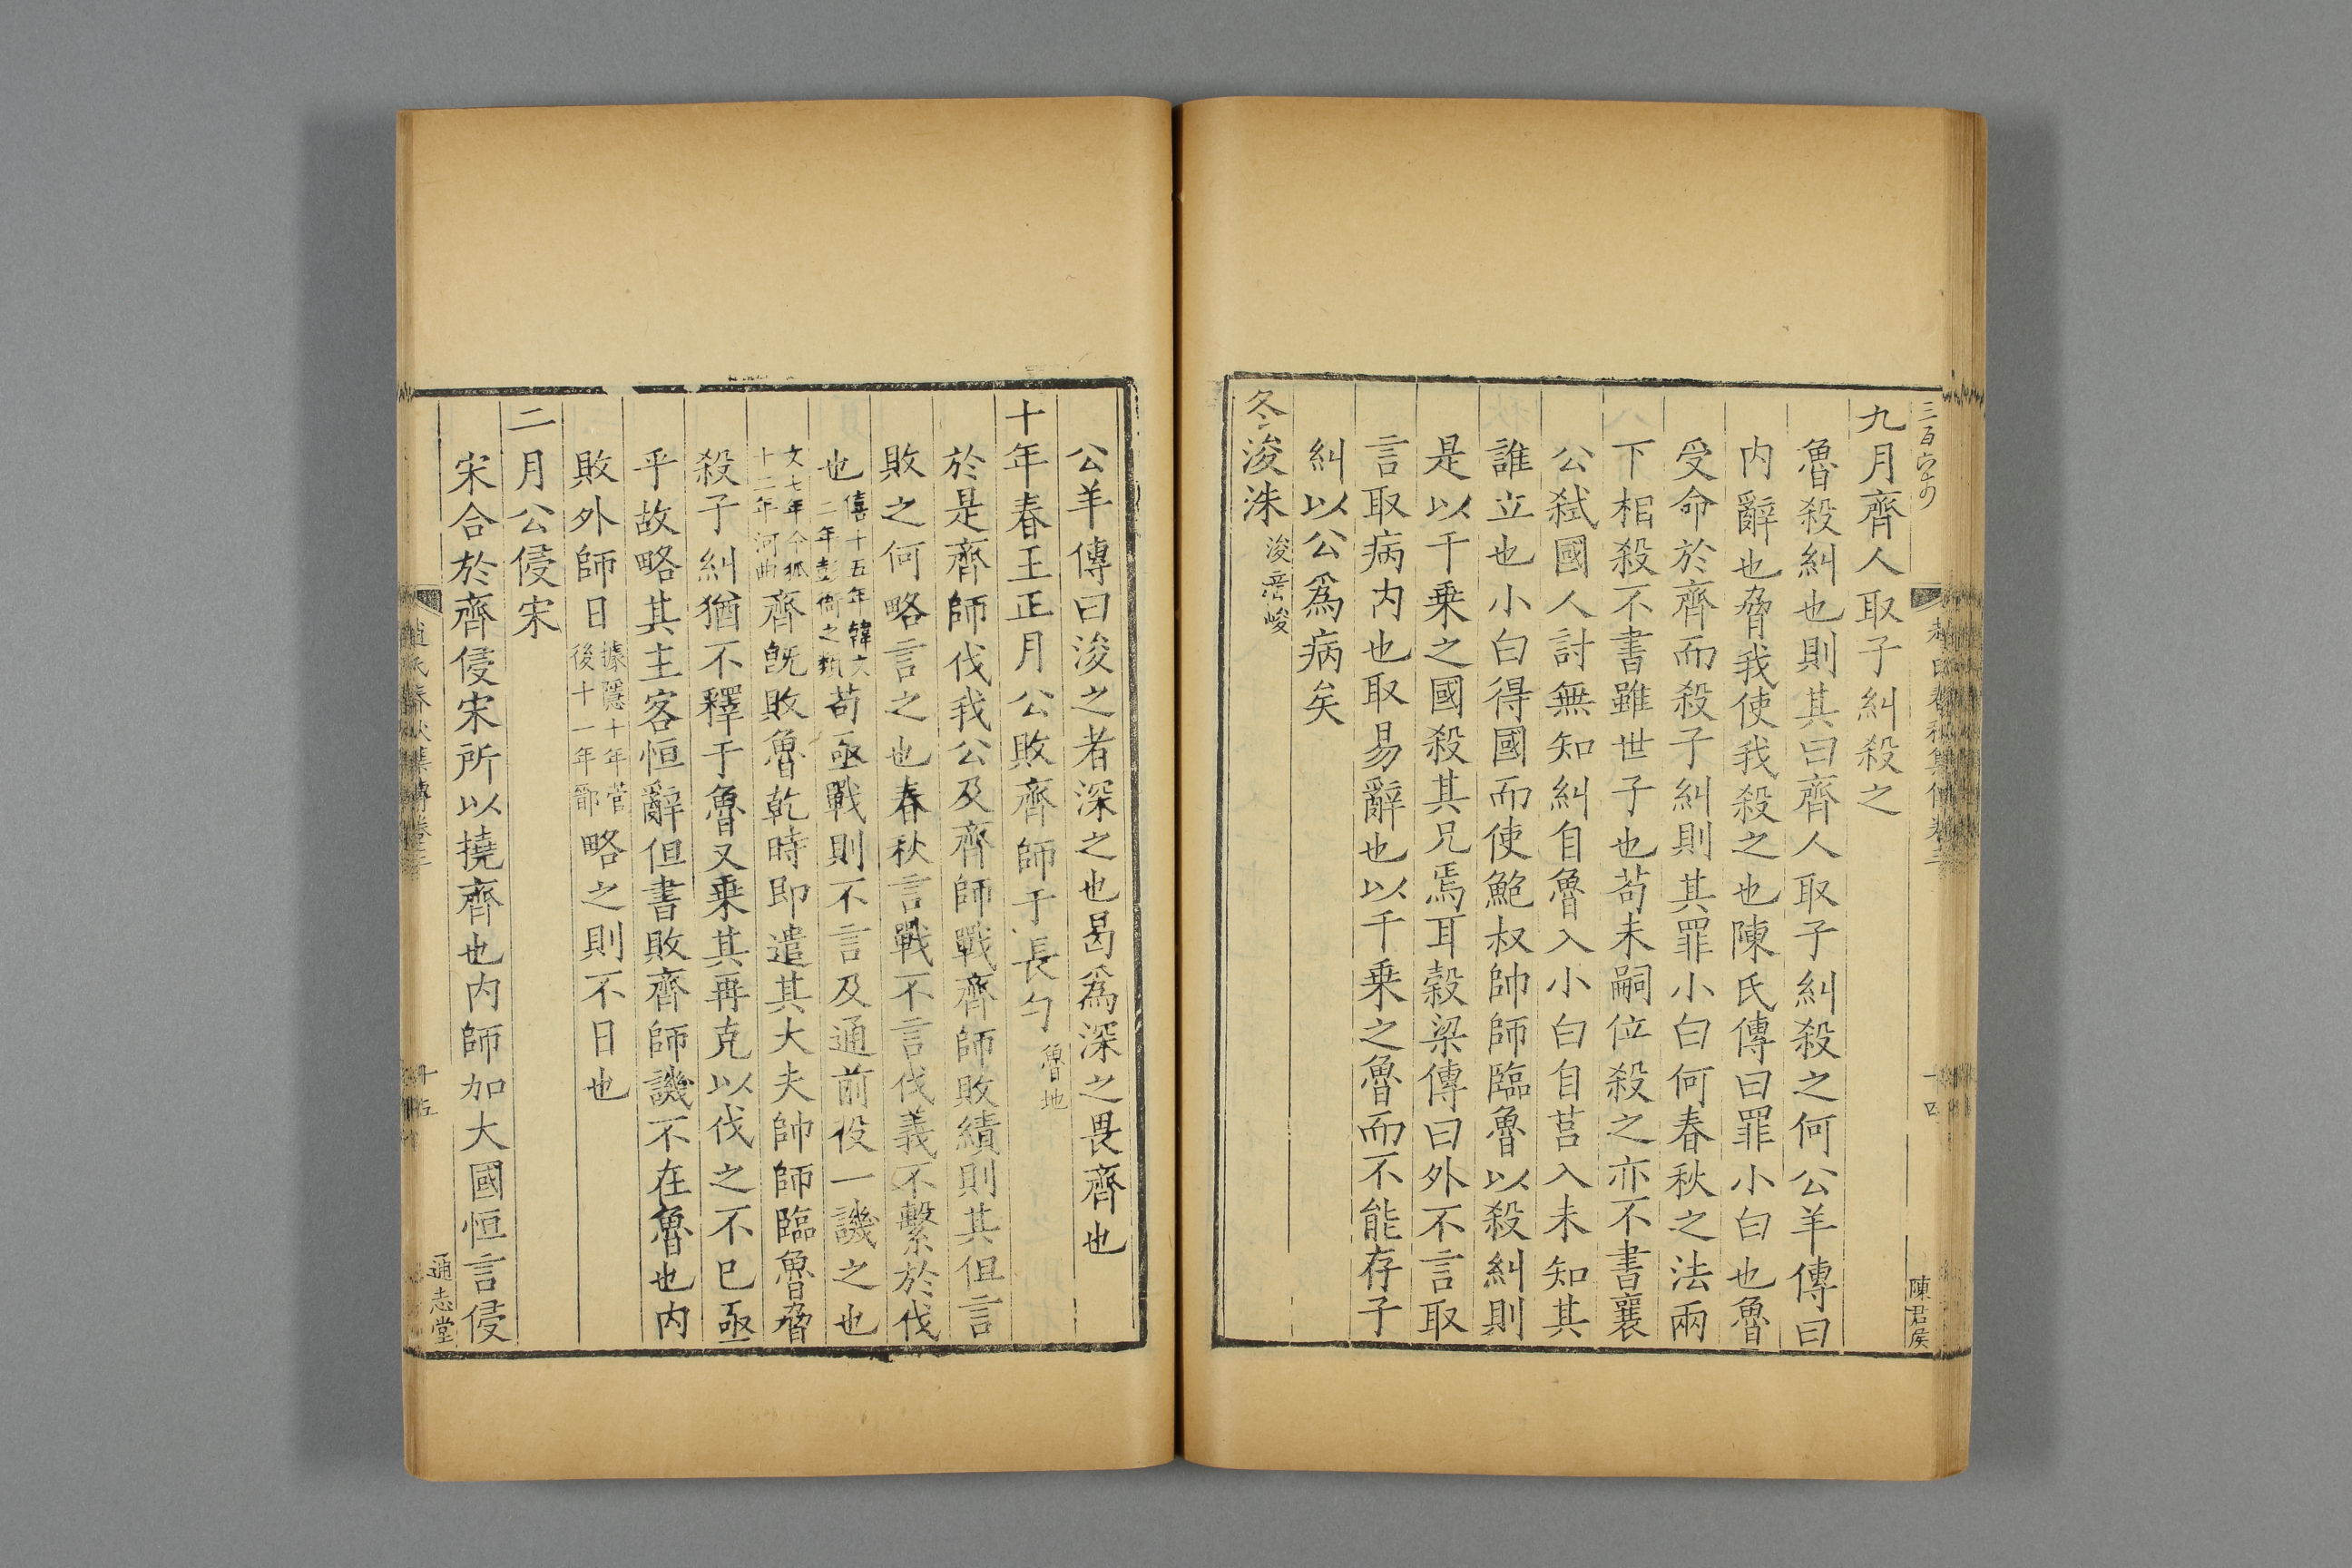 九月齊人取子糾殺之
魯殺糾也則其曰齊人取子糾殺之何公羊傳曰
内辭也脅我使我殺之也陳氏傳曰罪小白也魯
受命於齊而殺子糾則其罪小白何春秋之法兩
下相殺不書雖世子也茍未嗣位殺之亦不書襄
公弑國人討無知糾自魯入小白自莒入未知其
誰立也小白得國而使鮑叔帥師臨魯以殺糾則
是以千乗之國殺其兄焉耳穀梁傳曰外不言取
言取病内也取易辭也以千乗之魯而不能存子
糾以公爲病矣
冬浚洙浚音峻
陳君侯
公羊傳曰浚之者深之也曷爲深之畏齊也
十年春王正月公敗齊師于長勺魯地
於是齊師伐我公及齊師戰齊師敗績則其但言
敗之何略言之也春秋言戰不言伐義不繫於伐
也僖十五年韓六二年彭衙之類茍亟戰則不言及通前役一譏之也
文七年令狐十二年河曲齊旣敗魯乾時即遣其大夫帥師臨魯脅
殺子糾猶不釋于魯又乗其再克以伐之不巳亟
乎故略其主客恒辭但書敗齊師譏不在魯也内
敗外師日據隱十年菅後十一年鄑略之則不日也
二月公侵宋
宋合於齊侵宋所以撓齊也内師加大國恒言侵
趙氏春秋集傳卷三
十五
通志堂